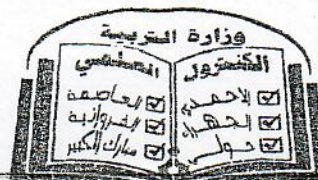 وزارة التربية
الكنترول العلمي
الأحمدي
الجهراء
حولي
العاصمة
الفروانية
مبارك الكبير